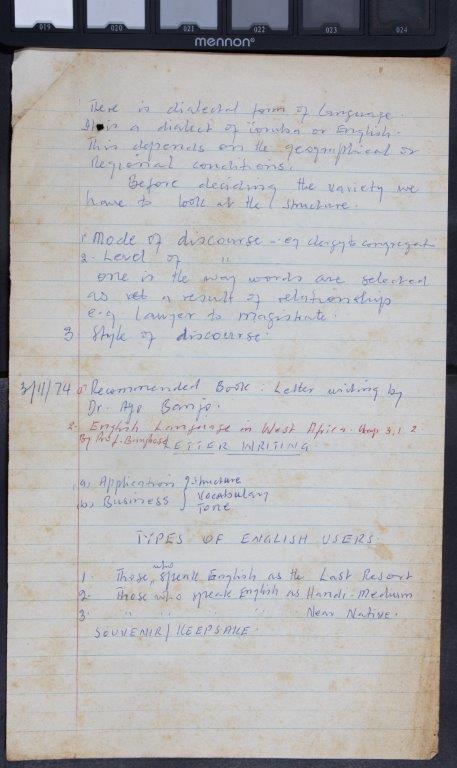 019 020 021 022 023 024
mennon
There is dialectal form of language.
It is a dialect of Yoruba or English.
This depends on the geographical or
Regional conditions.
Before deciding the variety we
have to look at the structure.
1. Mode of discourse - eg clergy to congregat
2. Level of "
one is the way words are selected
as a result of relationship
e.g Lawyer to magistrate.
3. Style of discourse.
3/11/74 Recommended Book: Letter writing by
Dr. Ayo Banjo.
2. English Language in West Africa. 3, 1 2
By Prof.
LETTER WRITING
(a) Application } Structure
(b) Business } Vocabulary
Tone
TYPES OF ENGLISH USERS.
1. Those who speak English as the Last Resort
2. Those who speak English as Handi-Medium
3. " " " " " Near Native.
SOUVENIR/KEEPSAKE.